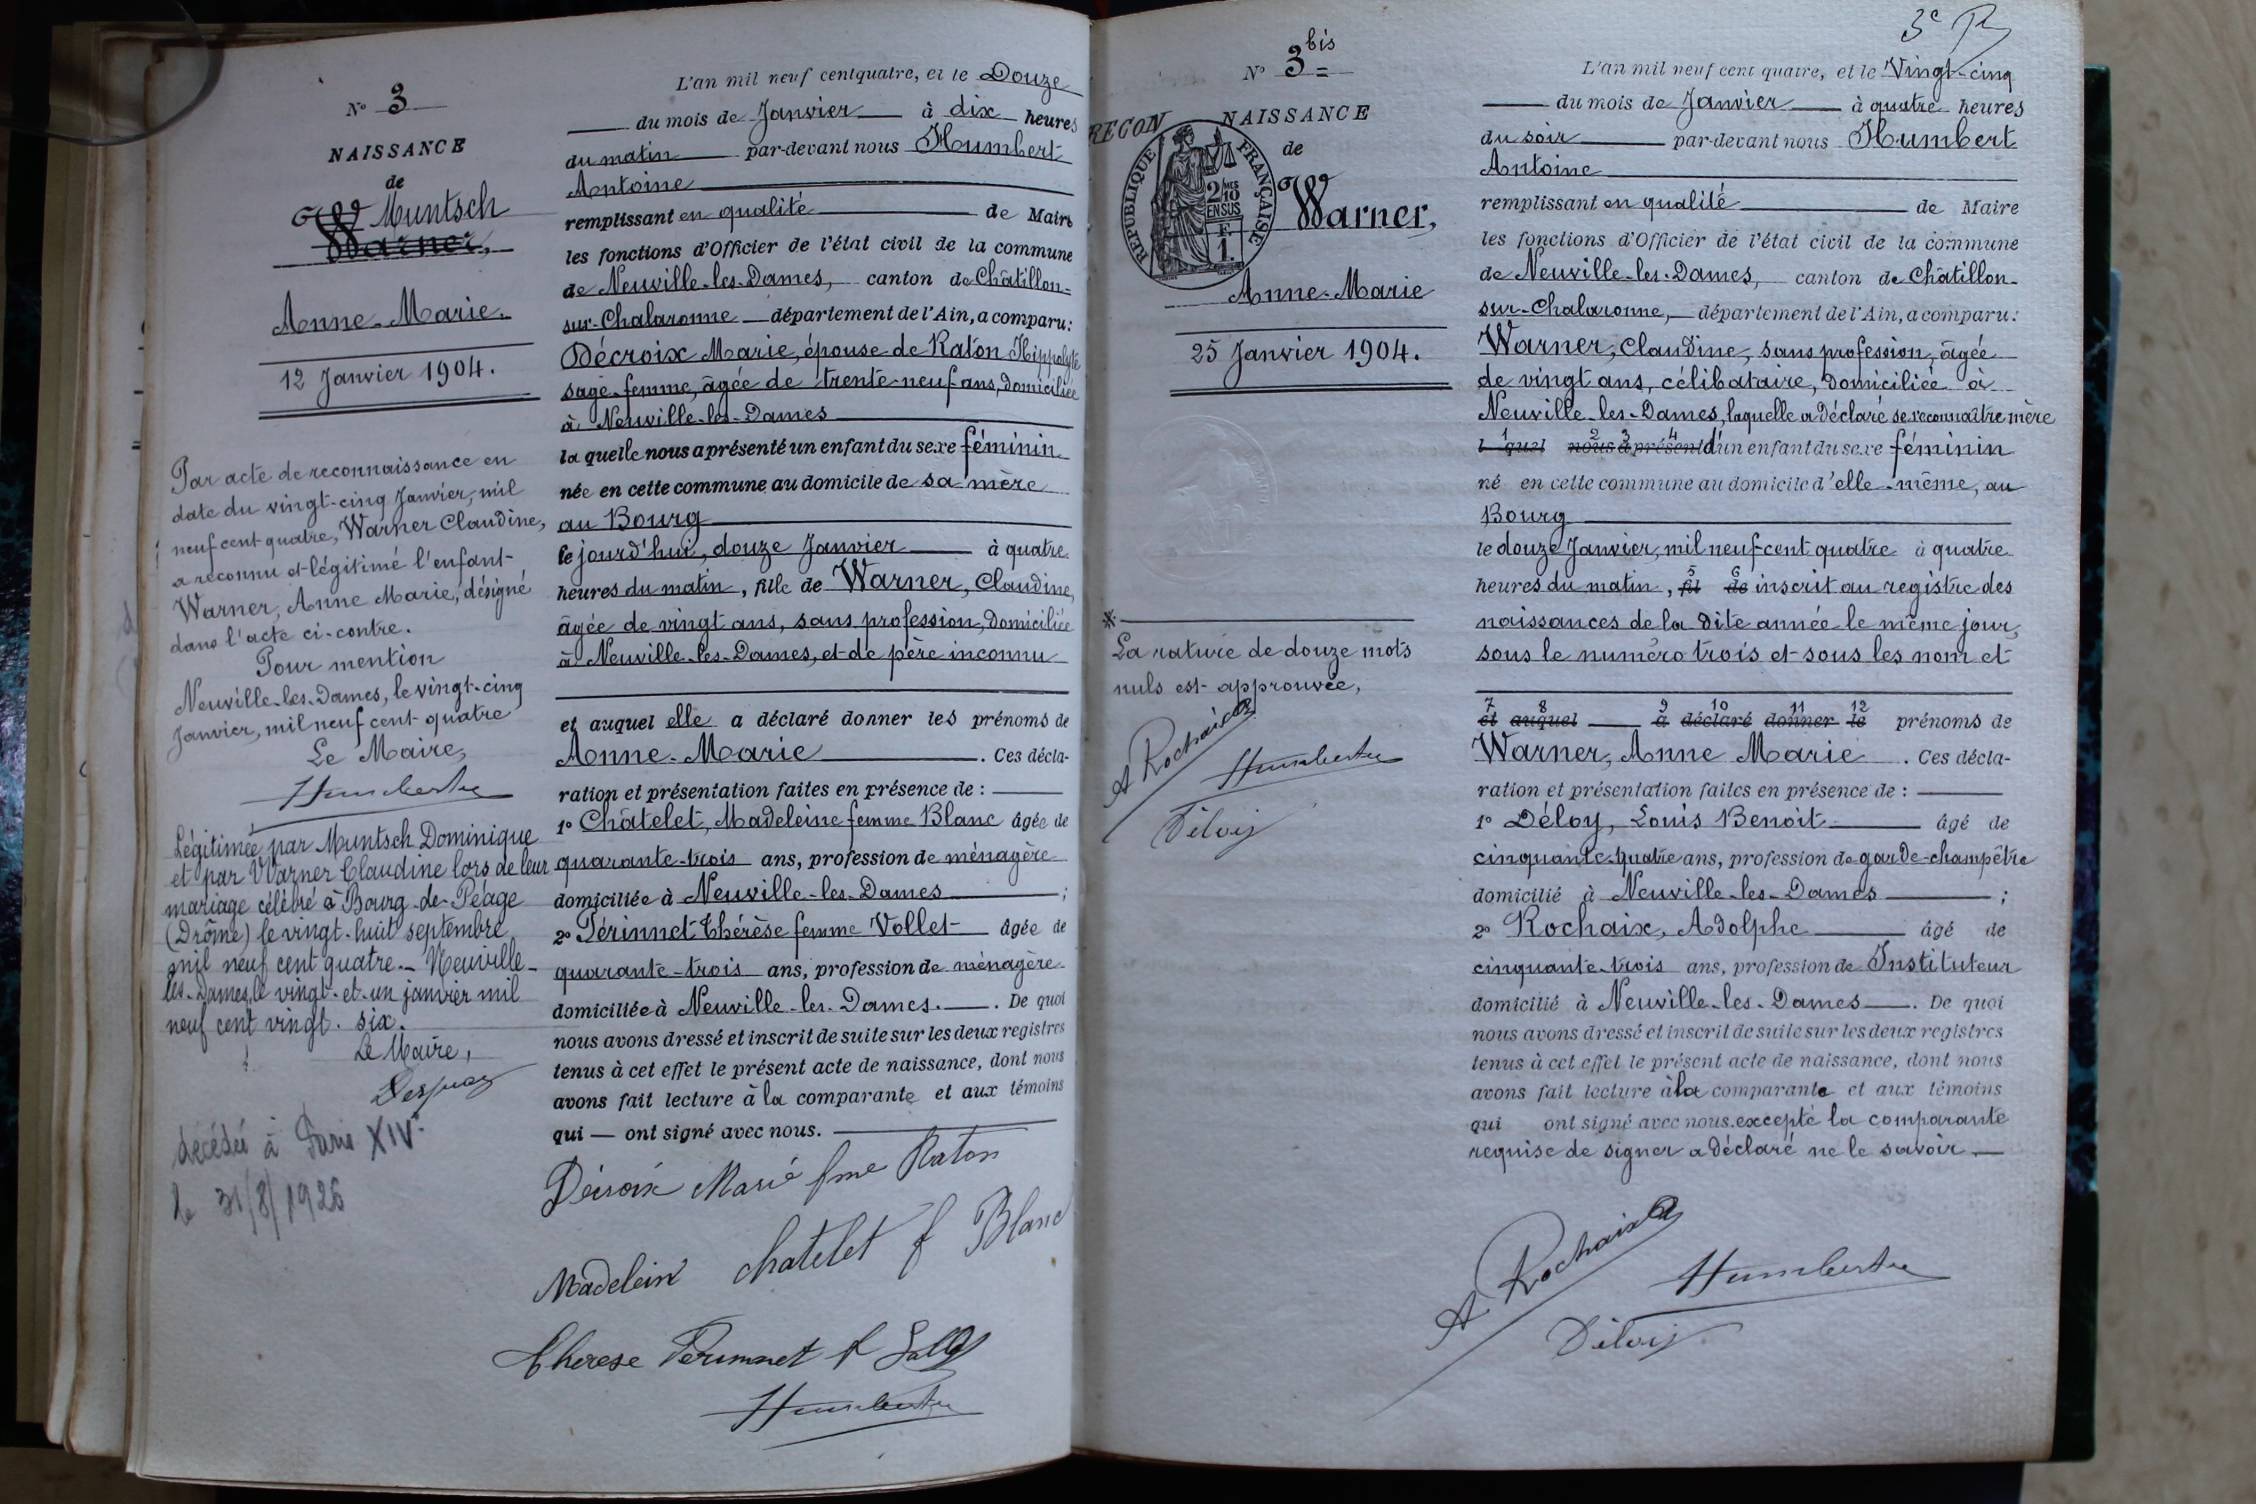 N° 3
NAISSANCE
de
Muntsch
Warner,
Anne-Marie.
12 Janvier 1904.
Par acte de reconnaissance en
date du vingt-cinq Janvier, mil
neuf cent quatre, Warner Claudine,
a reconnu et légitimé l'enfant
Warner, Anne Marie, désigné
dans l'acte ci-contre.
Pour mention
Neuville-les-Dames, le vingt-cinq
Janvier, mil neuf cent quatre
Le Maire,
Humbert
Légitimée par Muntsch Dominique
et par Warner Claudine lors de leur
mariage célébré à Bourg-de-Péage
(Drôme) le vingt-huit septembre
mil neuf cent quatre. - Neuville-
les-Dames, le vingt-et-un janvier mil
neuf cent vingt-six.
Le Maire,
décédée à Paris XIVe
le 31/8/1926
L'an mil neuf cent quatre, et le Douze
du mois de Janvier à dix heures
du matin par-devant nous Humbert
Antoine
remplissant en qualité de Maire
les fonctions d'Officier de l'état civil de la commune
de Neuville-les-Dames, canton de Châtillon-
sur-Chalaronne département de l'Ain, a comparu:
Décroix Marie, épouse de Raton Hippolyte
sage-femme, âgée de trente-neuf ans, domiciliée
à Neuville-les-Dames
la quelle nous a présenté un enfant du sexe féminin
née en cette commune au domicile de sa mère
au Bourg
le jourd'hui, douze Janvier à quatre
heures du matin, fille de Warner, Claudine,
âgée de vingt ans, sans profession, domiciliée
à Neuville-les-Dames, et de père inconnu
et auquel elle a déclaré donner les prénoms de
Anne-Marie. Ces décla-
ration et présentation faites en présence de :
1° Châtelet, Madeleine femme Blanc âgée de
quarante-trois ans, profession de ménagère
domiciliée à Neuville-les-Dames ;
2° Périnnet Thérèse femme Vollet âgée de
quarante-trois ans, profession de ménagère
domiciliée à Neuville-les-Dames. De quoi
nous avons dressé et inscrit de suite sur les deux registres
tenus à cet effet le présent acte de naissance, dont nous
avons fait lecture à la comparante et aux témoins
qui — ont signé avec nous.
Décroix Marie fme Raton
Madelein chatelet f Blanc
Therese Perinnet f
Humbert
N° 3 bis
RECON
NAISSANCE
de
RÉPUBLIQUE FRANÇAISE
2/10MES
EN SUS
F.
1.
Warner,
Anne-Marie
25 Janvier 1904.
La rature de douze mots
nuls est approuvée,
A Rochaix
Humbert
Déloy
3e
L'an mil neuf cent quatre, et le Vingt-cinq
du mois de Janvier à quatre heures
du soir par-devant nous Humbert
Antoine
remplissant en qualité de Maire
les fonctions d'Officier de l'état civil de la commune
de Neuville-les-Dames, canton de Châtillon-
sur-Chalaronne, département de l'Ain, a comparu:
Warner, Claudine, sans profession, âgée
de vingt ans, célibataire, domiciliée à
Neuville-les-Dames, laquelle a déclaré se reconnaître mère
1 2 3 4
l quel nous a présent d'un enfant du sexe féminin
né en cette commune au domicile d'elle-même, au
Bourg
le douze Janvier, mil neuf cent quatre à quatre
5 6
heures du matin, fil de inscrit au registre des
naissances de la dite année le même jour,
sous le numéro trois et sous les nom et
7 8 9 10 11 12
et auquel a déclaré donner le prénoms de
Warner, Anne Marie. Ces décla-
ration et présentation faites en présence de :
1° Déloy, Louis Benoit âgé de
cinquante-quatre ans, profession de garde-champêtre
domicilié à Neuville-les-Dames ;
2° Rochaix, Adolphe âgé de
cinquante-trois ans, profession de Instituteur
domicilié à Neuville-les-Dames. De quoi
nous avons dressé et inscrit de suite sur les deux registres
tenus à cet effet le présent acte de naissance, dont nous
avons fait lecture à la comparante et aux témoins
qui ont signé avec nous excepté la comparante
requise de signer a déclaré ne le savoir.
A Rochaix
Humbert
Déloy